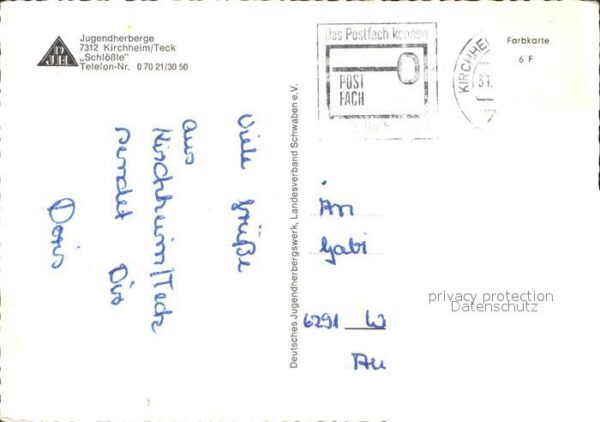 Jugendherberge
7312 Kirchheim/Teck
„Schlößle"
Telefon-Nr. 0 70 21/30 50
DJH
Das Postfach kennen
POST
FACH
KIRCHHE
31.
7
Farbkarte
6 F
Viele Grüße
aus
Kirchheim/Teck
sendet Dir
Doris
Deutsches Jugendherbergswerk, Landesverband Schwaben e.V.
An
Gabi
6291 W
Au
privacy protection
Datenschutz